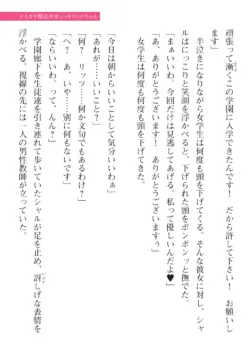 頑張って漸くこの学園に入学できたんです！　だから許して下さい！　お願いします」
半泣きになりながら女学生は何度も頭を下げてくる。そんな彼女に対し、シャ
ルはにっこりと笑顔を浮かべると、下げられた頭をポンポンッと撫でた。
「まぁいいわ。今回だけは見逃してあげる。私って優しいんだよ♥」
「あ、ありがとうございます！　ありがとうございますぅ」
女学生は何度も何度も頭を下げてきた。
「今日は朝からいいわぁ」
「あれが……いいことっすか？」
「何？　リッツ……何か文句でもあるわけ？」
「へ？　あ、いや……別に何もないっす」
「ん？」
学園廊下を生徒達を引き連れて歩いていたシャルが足を止め、訝しげな表情を
浮かべる。視線の先には一人の男性教師が立っていた。